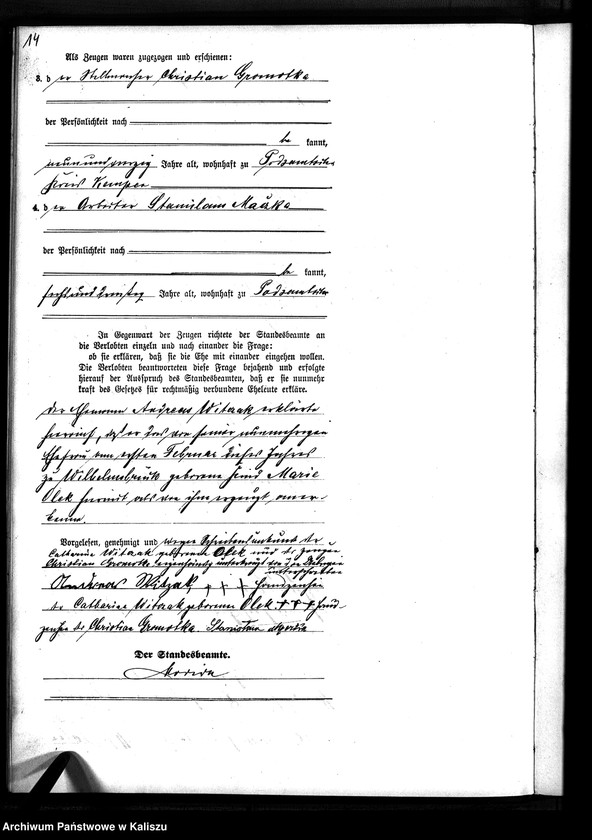 14
Als Zeugen waren zugezogen und erschienen:
3. d er Stellmacher Christian Gromotka
der Persönlichkeit nach
be kannt,
neunundvierzig Jahre alt, wohnhaft zu Podsamtsche
Kreis Kempen
4. d er Arbeiter Stanislaus
der Persönlichkeit nach
be kannt,
Jahre alt, wohnhaft zu Podsamtsche
In Gegenwart der Zeugen richtete der Standesbeamte an
die Verlobten einzeln und nach einander die Frage:
ob sie erklären, daß sie die Ehe mit einander eingehen wollen.
Die Verlobten beantworteten diese Frage bejahend und erfolgte
hierauf der Ausspruch des Standesbeamten, daß er sie nunmehr
kraft des Gesetzes für rechtmäßig verbundene Eheleute erkläre.
Der Ehemann Andreas Witzak erklärte
hiermit, daß er das von seiner nunmehrigen
Ehefrau am ersten Februar dieses Jahres
zu Wilhelmsbrück geborene Kind Marie
Olek hiermit als von ihm erzeugt aner-
kenne.
Vorgelesen, genehmigt und wegen Schreibensunkunde der
Catharina Witzak geborenen Olek und des Zeugen
Christian Gromotka unterkreuzt von den Übrigen
unterschrieben
Andreas Witzak, + + + Handzeichen
der Catharina Witzak geborenen Olek. + + + Hand-
zeichen des Christian Gromotka. Stanislaus
Der Standesbeamte.
Archiwum Państwowe w Kaliszu